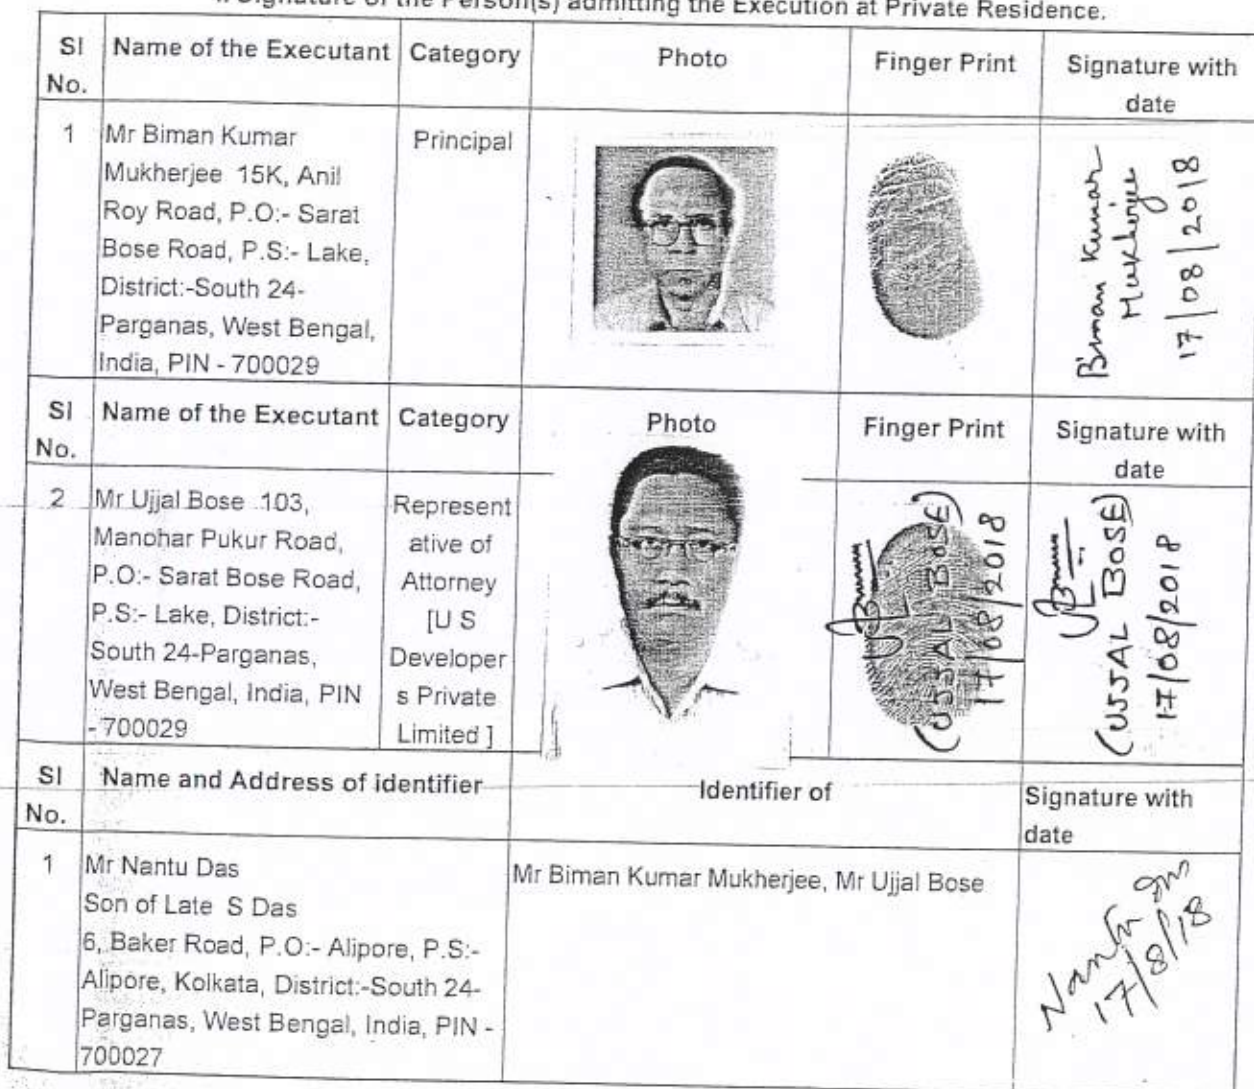 Signature of the Person(s) admitting the Execution at Private Residence.
Sl No. Name of the Executant Category Photo Finger Print Signature with date
1
Mr Biman Kumar
Mukherjee 15K, Anil
Roy Road, P.O:- Sarat
Bose Road, P.S:- Lake,
District:-South 24-
Parganas, West Bengal,
India, PIN - 700029
Principal
Biman Kumar
Mukherjee
17/08/2018
Sl No. Name of the Executant Category Photo Finger Print Signature with date
2
Mr Ujjal Bose 103,
Manohar Pukur Road,
P.O:- Sarat Bose Road,
P.S:- Lake, District:-
South 24-Parganas,
West Bengal, India, PIN
- 700029
Represent
ative of
Attorney
[U S
Developer
s Private
Limited ]
(UJJAL BOSE)
17/08/2018
(UJJAL BOSE)
17/08/2018
Sl No. Name and Address of identifier Identifier of Signature with date
1
Mr Nantu Das
Son of Late S Das
6, Baker Road, P.O:- Alipore, P.S:-
Alipore, Kolkata, District:-South 24-
Parganas, West Bengal, India, PIN -
700027
Mr Biman Kumar Mukherjee, Mr Ujjal Bose
Nantu Das
17/8/18